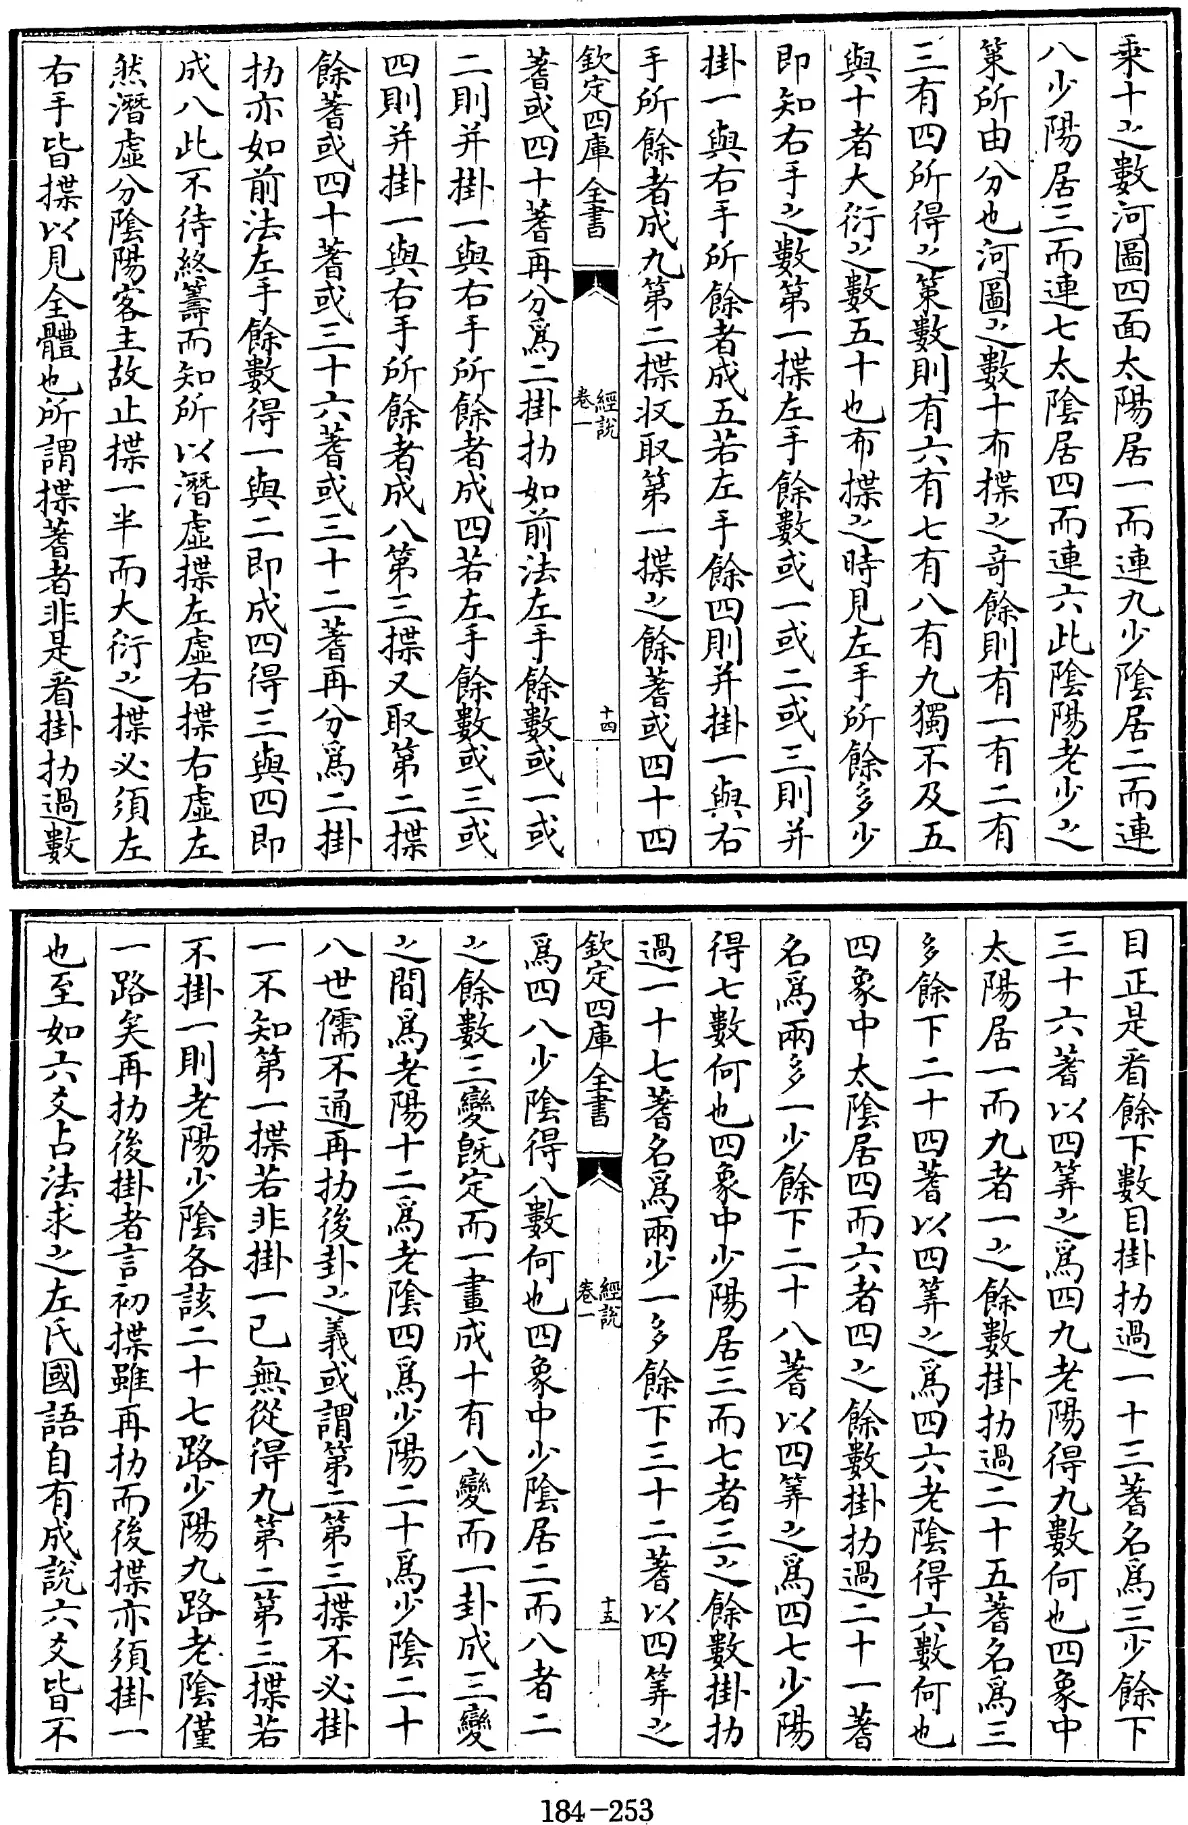 乘十之數河圖四面太陽居一而連九少陰居二而連
八少陽居三而連七太陰居四而連六此陰陽老少之
策所由分也河圖之數十布揲之竒餘則有一有二有
三有四所得之策數則有六有七有八有九獨不及五
與十者大衍之數五十也布揲之時見左手所餘多少
即知右手之數第一揲左手餘數或一或二或三則并
掛一與右手所餘者成五若左手餘四則并掛一與右
手所餘者成九第二揲收取第一揲之餘蓍或四十四
欽定四庫全書
經說
卷一
十四
蓍或四十蓍再分爲二掛扐如前法左手餘數或一或
二則并掛一與右手所餘者成四若左手餘數或三或
四則并掛一與右手所餘者成八第三揲又取第二揲
餘蓍或四十蓍或三十六蓍或三十二蓍再分爲二掛
扐亦如前法左手餘數得一與二即成四得三與四即
成八此不待終籌而知所以潛虛揲左虛右揲右虛左
然潛虛分陰陽客主故止揲一半而大衍之揲必須左
右手皆揲以見全體也所謂揲蓍者非是看掛扐過數
目正是看餘下數目掛扐過一十三蓍名爲三少餘下
三十六蓍以四筭之爲四九老陽得九數何也四象中
太陽居一而九者一之餘數掛扐過二十五蓍名爲三
多餘下二十四蓍以四筭之爲四六老陰得六數何也
四象中太陰居四而六者四之餘數掛扐過二十一蓍
名爲兩多一少餘下二十八蓍以四筭之爲四七少陽
得七數何也四象中少陽居三而七者三之餘數掛扐
過一十七蓍名爲兩少一多餘下三十二蓍以四筭之
欽定四庫全書
經說
卷一
十五
爲四八少陰得八數何也四象中少陰居二而八者二
之餘數三變旣定而一畫成十有八變而一卦成三變
之間爲老陽十二爲老陰四爲少陽二十爲少陰二十
八世儒不通再扐後卦之義或謂第二第三揲不必掛
一不知第一揲若非掛一已無從得九第二第三揲若
不掛一則老陽少陰各該二十七路少陽九路老陰僅
一路矣再扐後掛者言初揲雖再扐而後揲亦須掛一
也至如六爻占法求之左氏國語自有成說六爻皆不
184-253